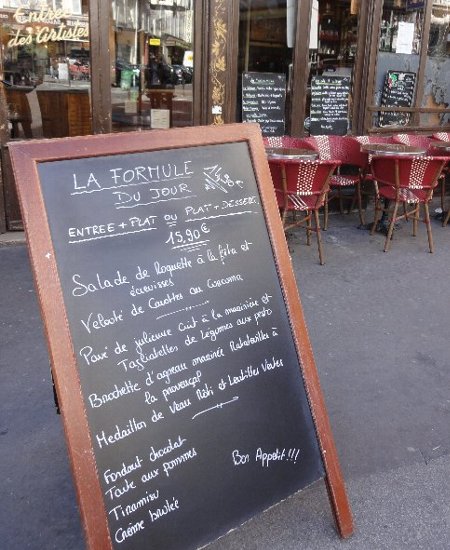 Entrée
des Artistes
LA FORMULE
DU JOUR
ENTREE + PLAT ou PLAT + DESSERT
15,90€
Salade de Roquette à la féta et
écrevisses
Velouté de Carottes au Curcuma
Pavé de julienne cuit à la marinière et
Tagliatelles de Légumes aux pesto
Brochette d'agneau marinée Ratatouilles à
la provençal
Medaillon de Veau Rôti et Lentilles Vertes
Fondant chocolat
Tarte aux pommes
Tiramisu
Crème brulée
Bon Appetit!!!